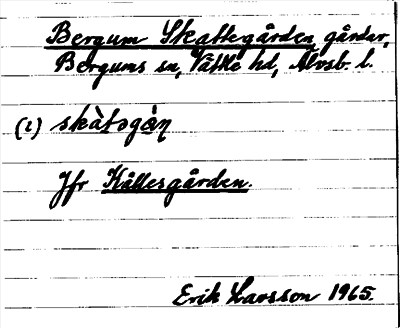 Bergum Skattegården, gårdar,
Bergums sn, Vättle hd, Älvsb. l.
(i) skàtəgàṇ
Jfr Kållesgården.
Erik Larsson 1965.